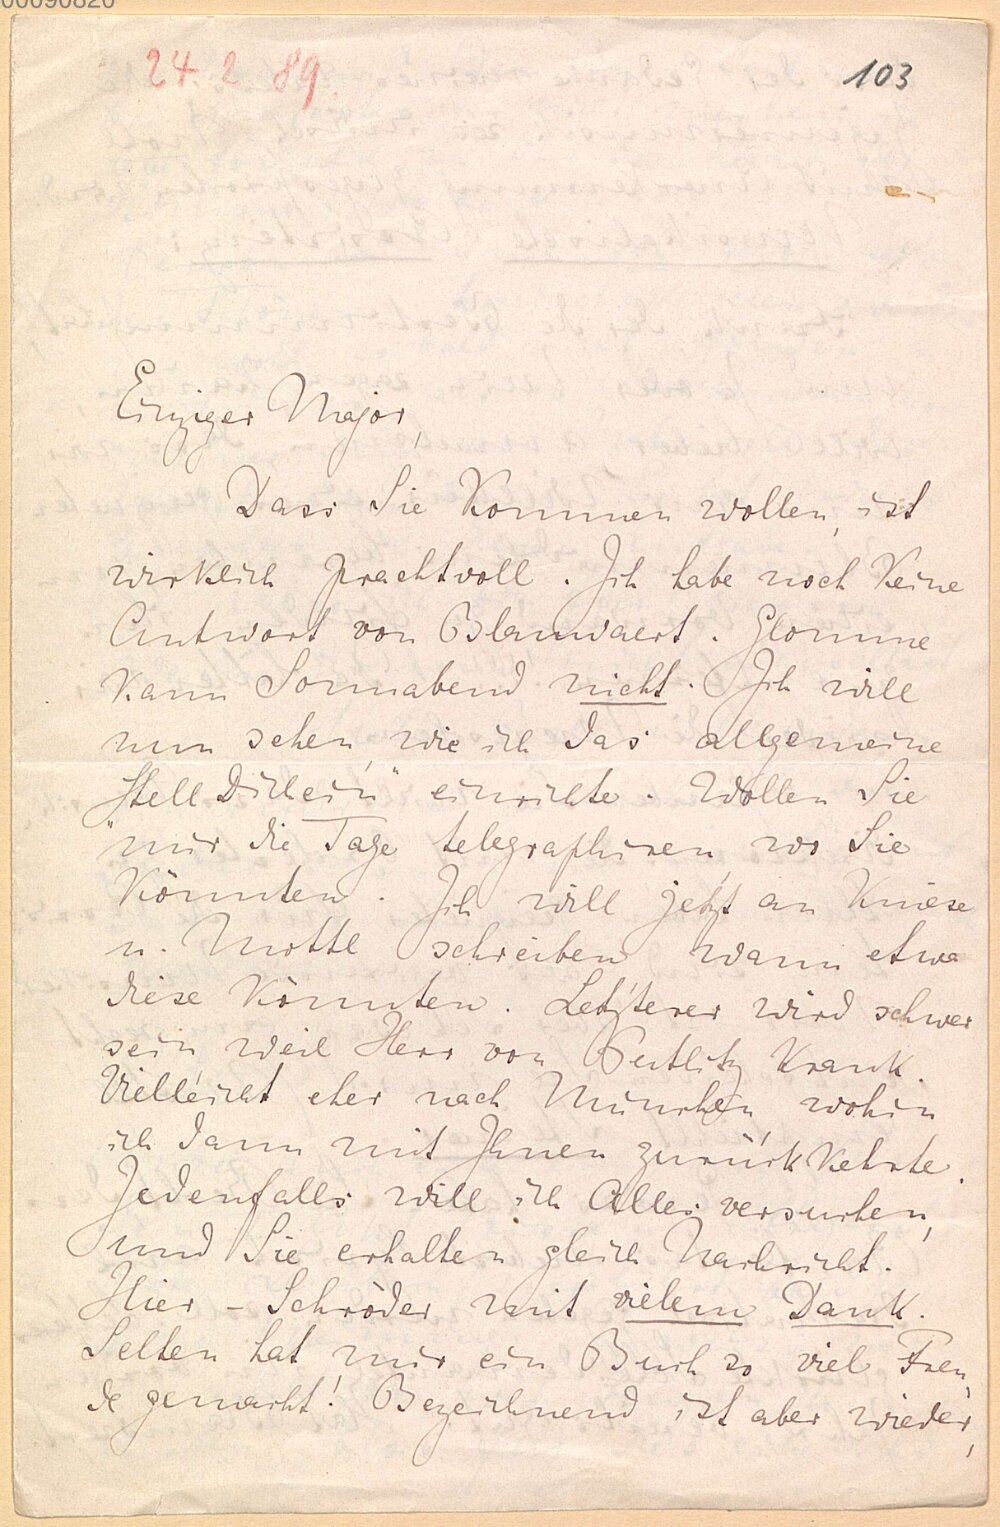 00090820
24. 2. 89.
103
Einziger Major,
Dass Sie kommen wollen, ist
wirklich prachtvoll. Ich habe noch keine
Antwort von Blauwaert. Glomme
kann Sonnabend nicht. Ich will
nun sehen wie ich das allgemeine
„Stell Dichein“ einrichte. Wollen Sie
mir die Tage telegraphiren wo Sie
könnten. Ich will jetzt an Kniese
u. Mottl schreiben wann etwa
diese könnten. Letzterer wird schwer
sein weil Herr von Putlitz krank.
Vielleicht eher nach München, wohin
ich dann mit Ihnen zurückkehrte.
Jedenfalls will ich Alles versuchen,
und Sie erhalten gleich Nachricht.
Hier – Schröder mit vielem Dank.
Selten hat mir ein Buch so viel Freu-
de gemacht! Bezeichnend ist aber wieder,